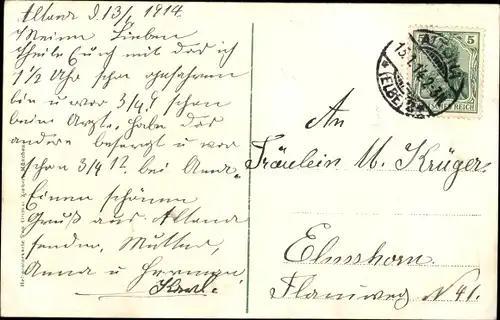 Altona d. 13/1 1914.
Meine Lieben
Theile Euch mit das ich
1/2 Uhr schon gefahren
bin u war 3/4 9 schon
beim Arzte, habe das
andere besorgt u war
schon 3/4 12. bei Anna.
Einen schönen
Gruß aus Altona
senden, Mutter,
Anna u Hermann
Karl.
5
ALTONA
13.1.14
(ELBE)
An
Fräulein M. Krüger.
Elmshorn.
Flamweg N 41.